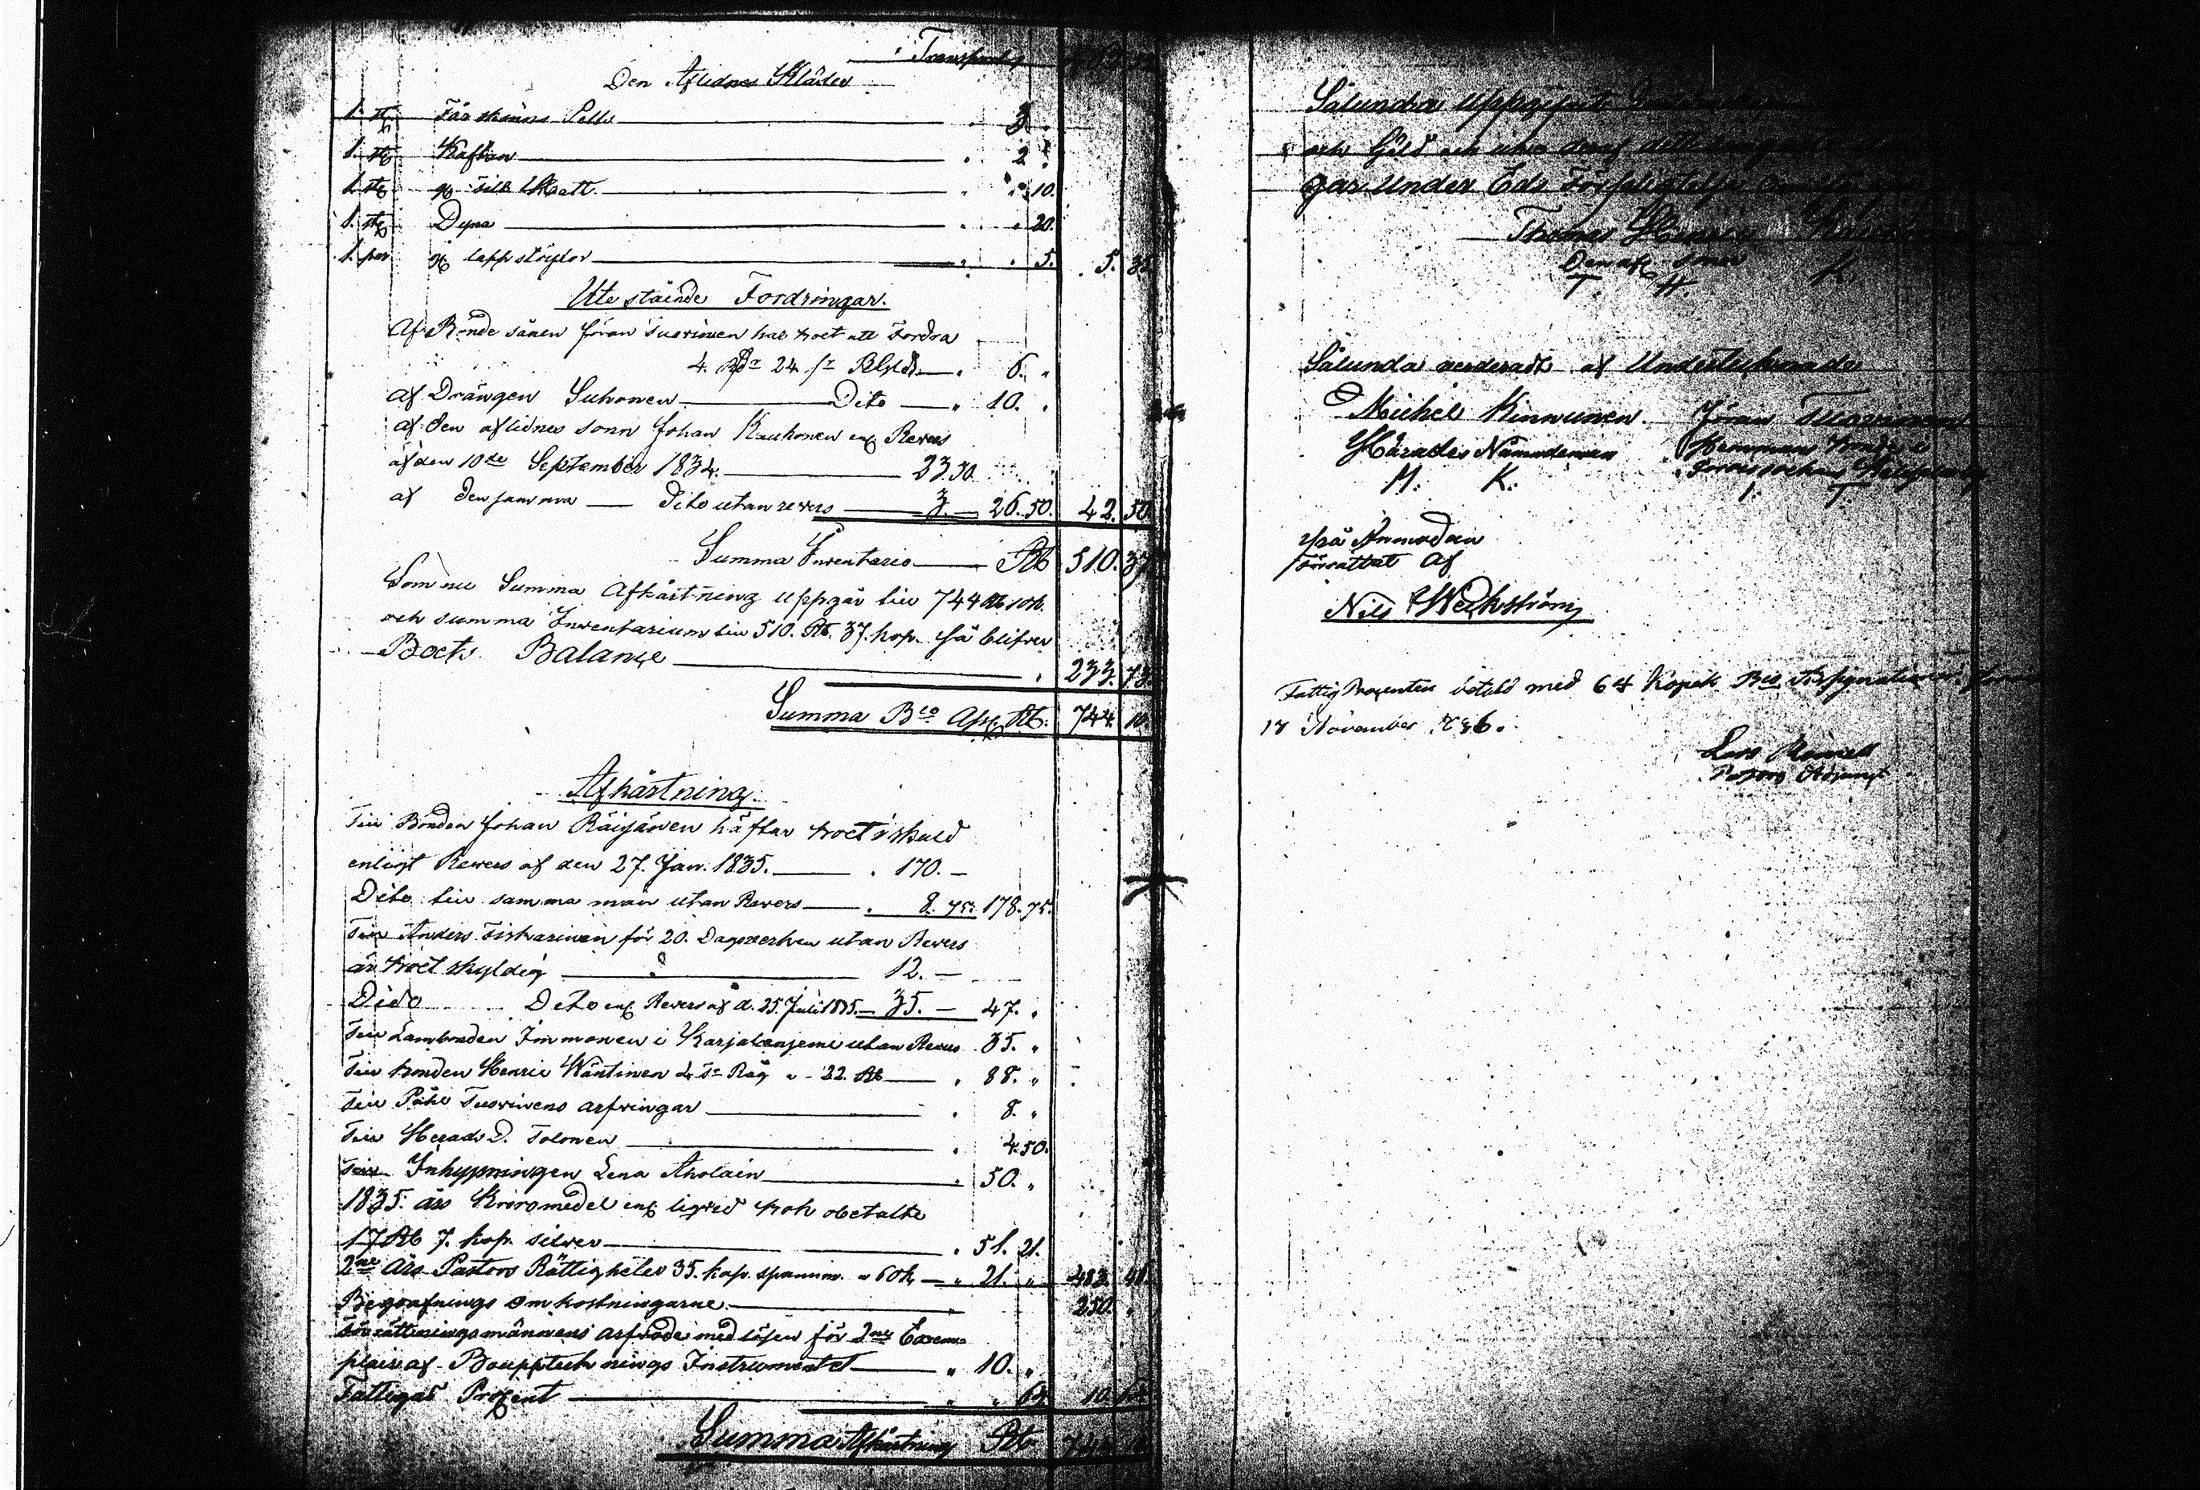 Transport
Den Aflidnes Kläder
1. st. Fårskinns Pells 3. "
1. st. Kaftan " 2. "
1. st. gl. Filt Hatt " " 10.
1. st. Dyna " " 20.
1. par gl lappstöflor " " 5. 5. 35.
Utestående Fordringar.
Af Bonde sånen Jöran Tuovinen har boet att Fordra
4. Rdr 24 sr Rgld " 6. "
af Drängen Suhonen Dito " 10. "
af den aflidnes sonn Johan Kauhonen enl Revers
af den 10de September 1834. 23.50.
af densamma Dito utan revers 3. 26.50. 42. 50.
Summa Inventario Rb 510. 37
Som nu Summa Afkårtning uppgår till 744 Rb 10 k.
och summa Inventarium till 510. Rb. 37. kop. så blifver
Boets Balance " 233. 73.
Summa Bco Ass. Rb. 744. 10.
Afkårtning.
Till Bonden Johan Räisänen häftar boet i skuld
enligt Revers af den 27. Jan. 1835. " 170. —
Dito till samma man utan Revers " 8. 75. 178. 75.
Till Anders Fiskarinen för 20. Dagsverken utan Revers
är boet skyldig 12. —
Dido Dito enl Revers af d. 25. Juli 1835. 35. — 47. "
Till Lambonden Immonen i Karjalan utan Revers 35. "
Till bonden Henric Wäntinen 4 Tr Råg a 22. Rb " 88. "
Till Påhl Tuovinens arfvingar " 8. "
Till Herads D. Tolonen " 4.50.
Till Inhysningen Lena Aholain " 50. "
1835. års Kronomedel enl liqvid bok obetalte
17 Rb 7. kop. silver " 51. 21.
2ne års Pastors Rättigheter 35. kap. spannm. a 60 k " 21. " 483. 46.
Begrafnings omkostningarne " 250. "
Förrättningsmännens arfvode med lösen för 2ne Exem-
plair af Bouppteknings Instrumentet " 10. "
Fattigas Procent " " 64 10. 64.
Summa Afkårtning Rb 744. 10.
Sålunda uppgifvit
och Gäld och
gar Under Eds Förpligtelse
Thomas
Den afl. soner
T. H. K.
Sålunda verderadt af Undertecknade
Michel Kinnunen Jöran Tuovinen
Härads Nämndeman Hemmans bonde i
M: K: J: T:
På Anmodan
Förrättat Af
Nils Weckström
Fattig Procenten istäld med 64 Kopek Bco Assignationer.
17 November 1836.
Pastors Adjunct